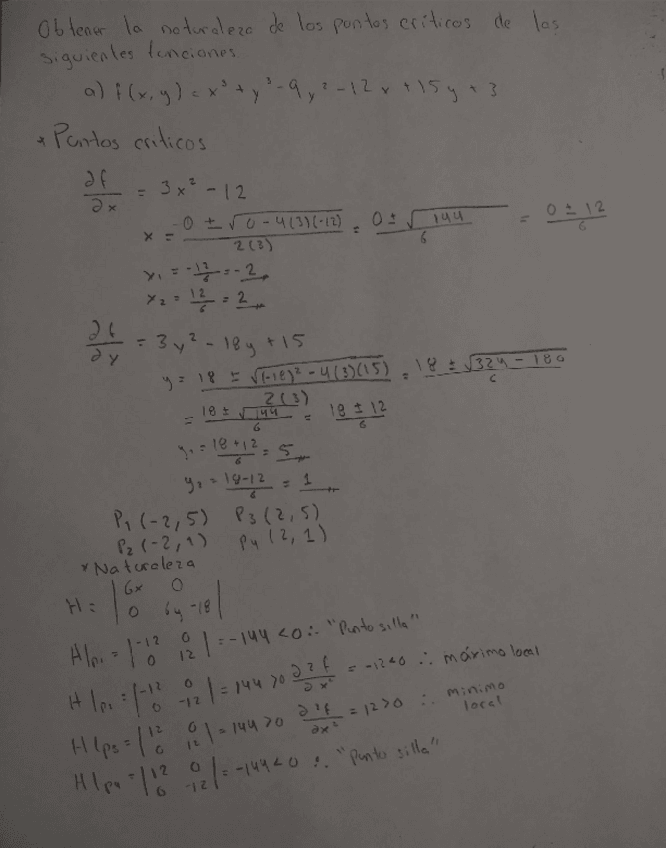 Obtener la naturaleza de los puntos críticos de las
siguientes funciones
a) f(x,y) = x³ + y³ - 9y² - 12x + 15y + 3
* Puntos criticos
∂f/∂x = 3x² - 12
x = -0 ± √0 - 4(3)(-12) / 2(3) = 0 ± √144 / 6 = 0 ± 12 / 6
x₁ = -12/6 = -2
x₂ = 12/6 = 2
∂f/∂y = 3y² - 18y + 15
y = 18 ± √(-18)² - 4(3)(15) / 2(3) = 18 ± √324 - 180 / 6
= 18 ± √144 / 6 = 18 ± 12 / 6
y₁ = 18+12 / 6 = 5
y₂ = 18-12 / 6 = 1
P₁ (-2, 5) P3 (2, 5)
P₂ (-2, 1) P4 (2, 1)
* Naturaleza
H = |6x 0; 0 6y-18|
H|p₁ = |-12 0; 0 12| = -144 < 0 ∴ "Punto silla"
H|p₂ = |-12 0; 0 -12| = 144 > 0 ∂²f/∂x² = -12 < 0 ∴ máximo local
H|p3 = |12 0; 0 12| = 144 > 0 ∂²f/∂x² = 12 > 0 ∴ minimo local
H|p4 = |12 0; 0 -12| = -144 < 0 ∴ "Punto silla"